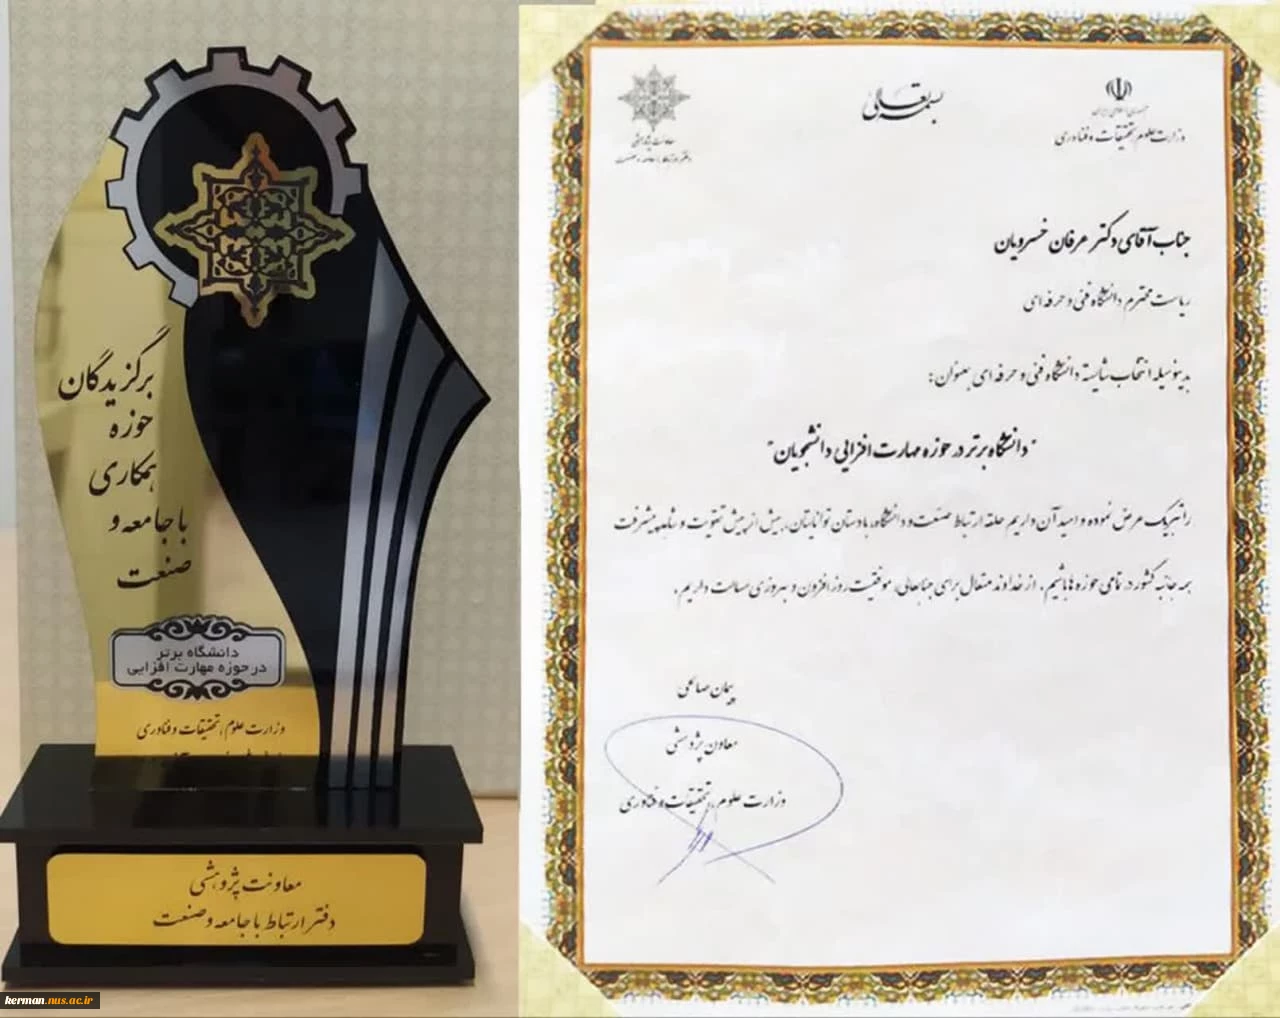 برگزیدگان
حوزه
همکاری
با جامعه و
صنعت
دانشگاه برتر
در حوزه مهارت افزایی
وزارت علوم، تحقیقات و فناوری
معاونت پژوهشی
دفتر ارتباط با جامعه و صنعت
kerman.nus.ac.ir
بسمه تعالی
جمهوری اسلامی ایران
وزارت علوم، تحقیقات و فناوری
معاونت پژوهشی
دفتر ارتباط با جامعه و صنعت
جناب آقای دکتر عرفان خسرویان
ریاست محترم دانشگاه فنی و حرفه ای
بدینوسیله انتخاب شایسته دانشگاه فنی و حرفه ای بعنوان:
"دانشگاه برتر در حوزه مهارت افزایی دانشجویان"
را تبریک عرض نموده و امید آن داریم حلقه ارتباط صنعت و دانشگاه، با دستان توانایتان، بیش از پیش تقویت و شاهد پیشرفت
همه جانبه کشور در تمامی حوزه ها باشیم. از خداوند متعال برای جنابعالی، موفقیت روز افزون و بهروزی مسالت داریم.
پیمان صالحی
معاون پژوهشی
وزارت علوم، تحقیقات و فناوری